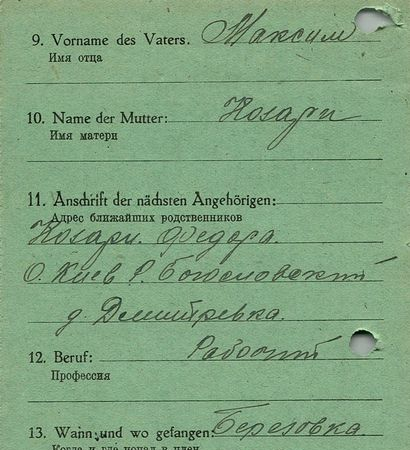 9. Vorname des Vaters. Максим
Имя отца
10. Name der Mutter: Козари
Имя матери
11. Anschrift der nächsten Angehörigen:
Адрес ближайших родственников
Козари. Федера.
О. Киев Р. Богословский
д. Демитревка.
12. Beruf: Рабочий
Профессия
13. Wann und wo gefangen: Березовка
Когда и где попал в плен